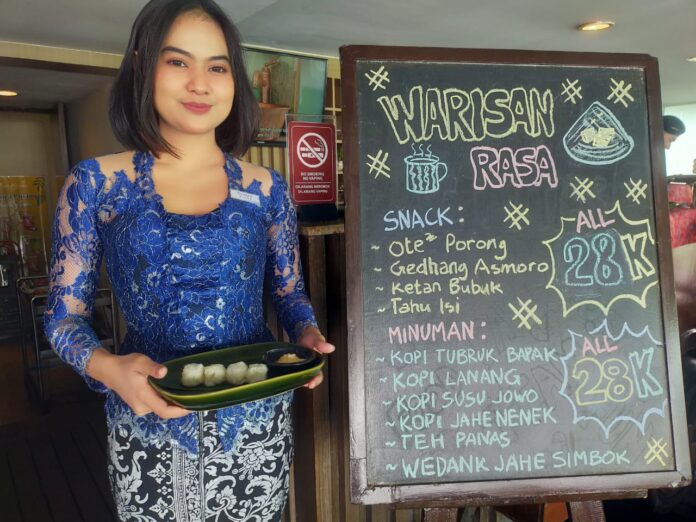 NO SMOKING
NO VAPING
DILARANG MEROKOK
DILARANG VAPING
WARISAN
RASA
SNACK :
~ Ote² Porong
~ Gedhang Asmoro
~ Ketan Bubuk
~ Tahu Isi
ALL
28K
MINUMAN :
~ KOPI TUBRUK BAPAK
~ KOPI LANANG
~ KOPI SUSU JOWO
~ KOPI JAHE NENEK
~ TEH PANAS
~ WEDANK JAHE SIMBOK
ALL
28K